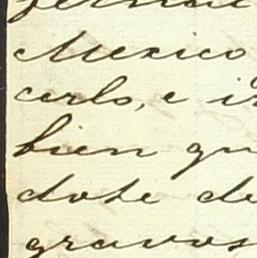 Mexico
cerlo, e i
bien qu
dote de
gravos